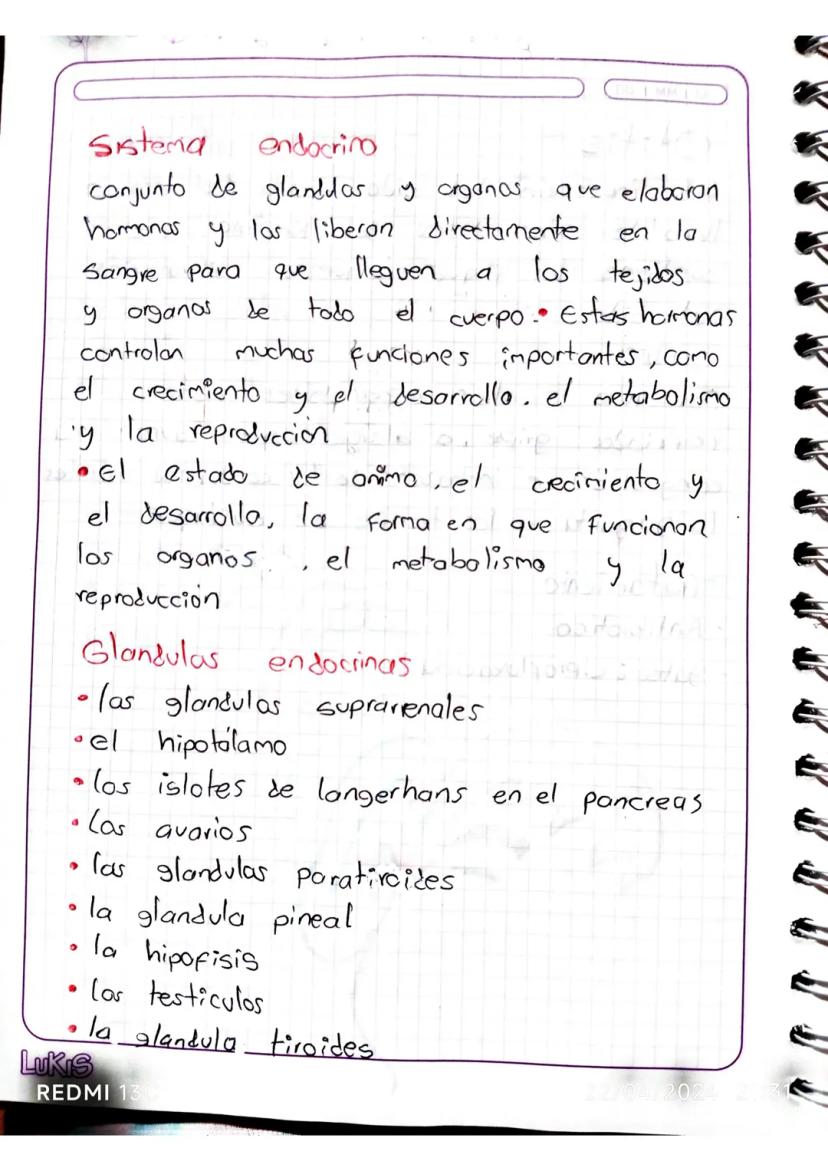 Sistema endocrino
conjunto de glandulas y organos que elaboran
hormonas y las liberan directamente en la
sangre para que lleguen a los tejidos
y organos de todo el cuerpo. • Estas hormonas
controlan muchas funciones importantes, como
el crecimiento y el desarrollo. el metabolismo
y la reproducción
• El estado de animo, el crecimiento y
el desarrollo, la forma en que funcionan
los organos, el metabolismo y la
reproducción
Glandulas endocrinas
• las glandulas suprarrenales
• el hipotálamo
• los islotes de langerhans en el pancreas
• Los avarios
• las glandulas paratiroides
• la glandula pineal
• la hipofisis
• los testiculos
• la glandula tiroides
LUKIS
REDMI 13
22/04/2024